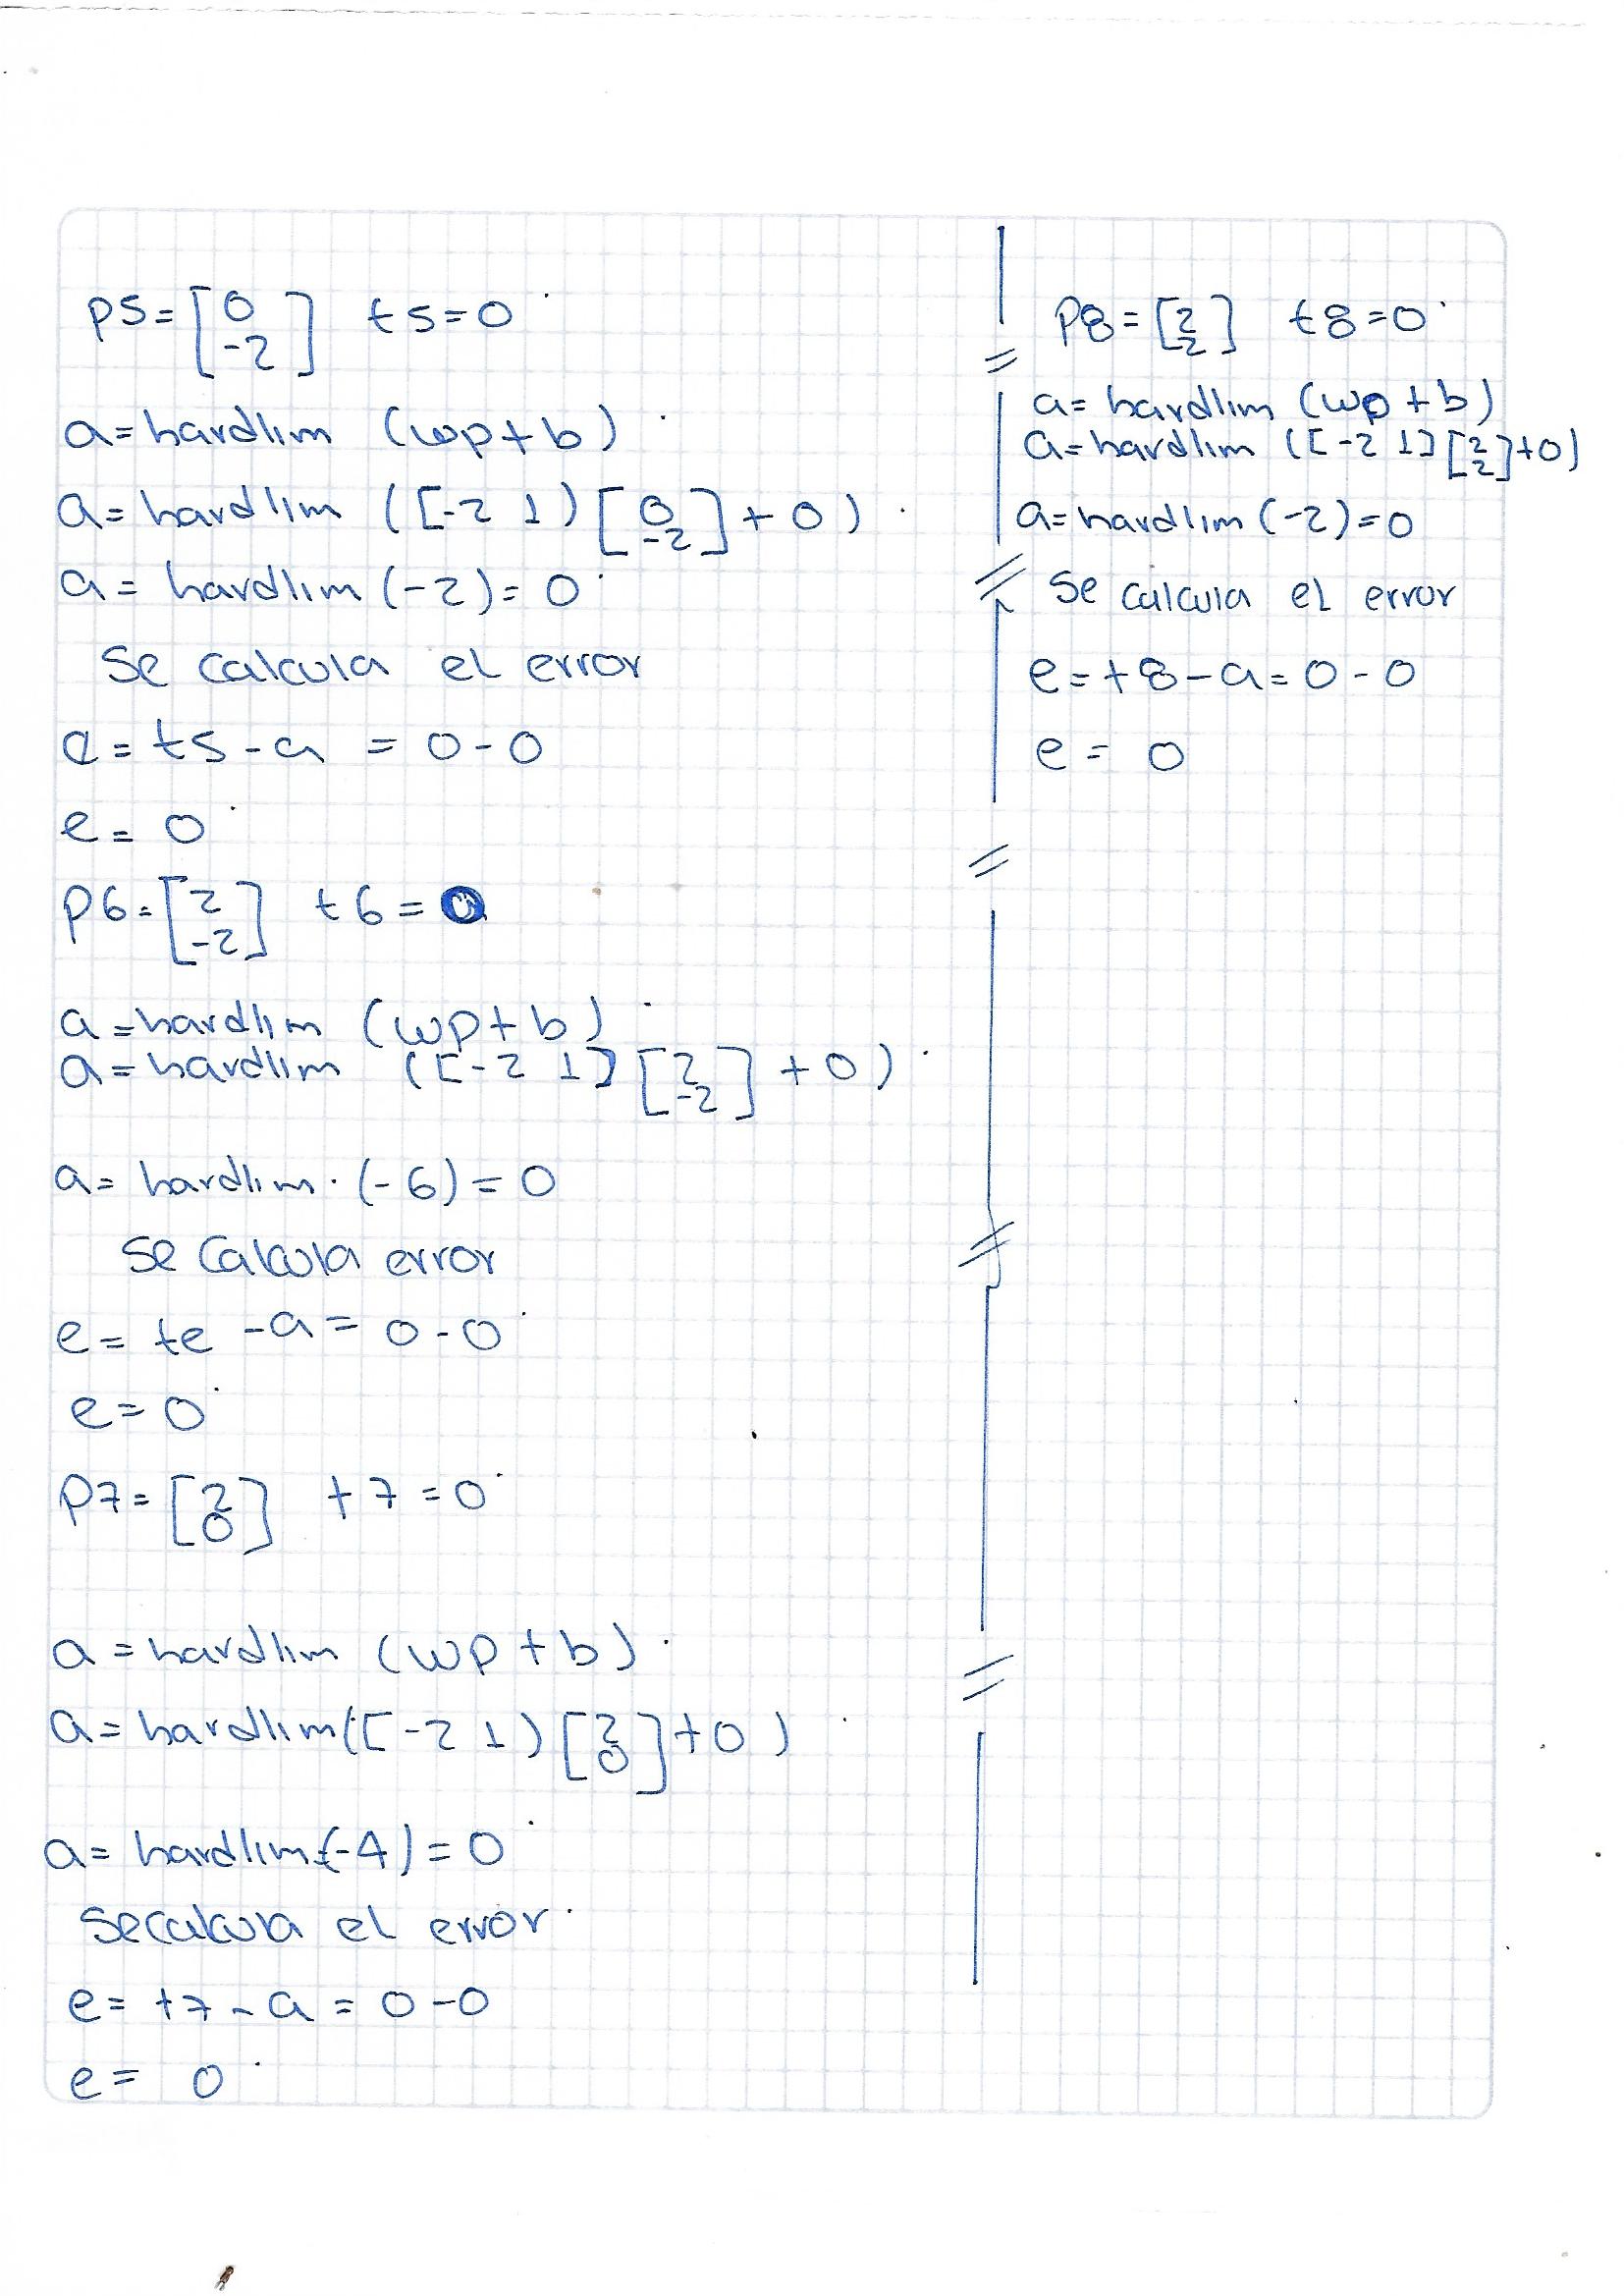 p5=[0 -2] t5=0
a=hardlim (wp+b)
a=hardlim ([-2 1)[0 -2]+0)
a= hardlim (-2)=0
Se calcula el error
e=t5-a = 0-0
e=0
p6=[2 -2] t6=0
a=hardlim (wp+b)
a=hardlim ([-2 1][2 -2]+0)
a= hardlim (-6)=0
Se calcula error
e= te -a= 0-0
e=0
p7=[2 0] t7=0
a=hardlim (wp+b)
a=hardlim([-2 1)[2 0]+0)
a= hardlim(-4)=0
Se calcula el error
e= t7-a=0-0
e= 0
p8=[2 2] t8=0
a= hardlim (wp+b)
a=hardlim ([-2 1][2 2]+0)
a=hardlim (-2)=0
Se calcula el error
e=t8-a=0-0
e= 0